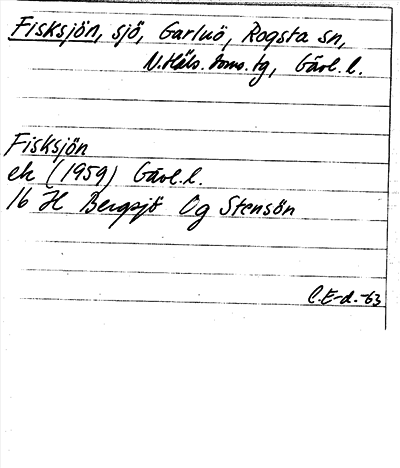 Fisksjön, sjö, Garluö, Rogsta sn,
N. Häls. doms. tg, Gävl. l.
Fisksjön
ek (1959) Gävl. l.
16 H Bergsjö Og Stensön
C. E-d. -63